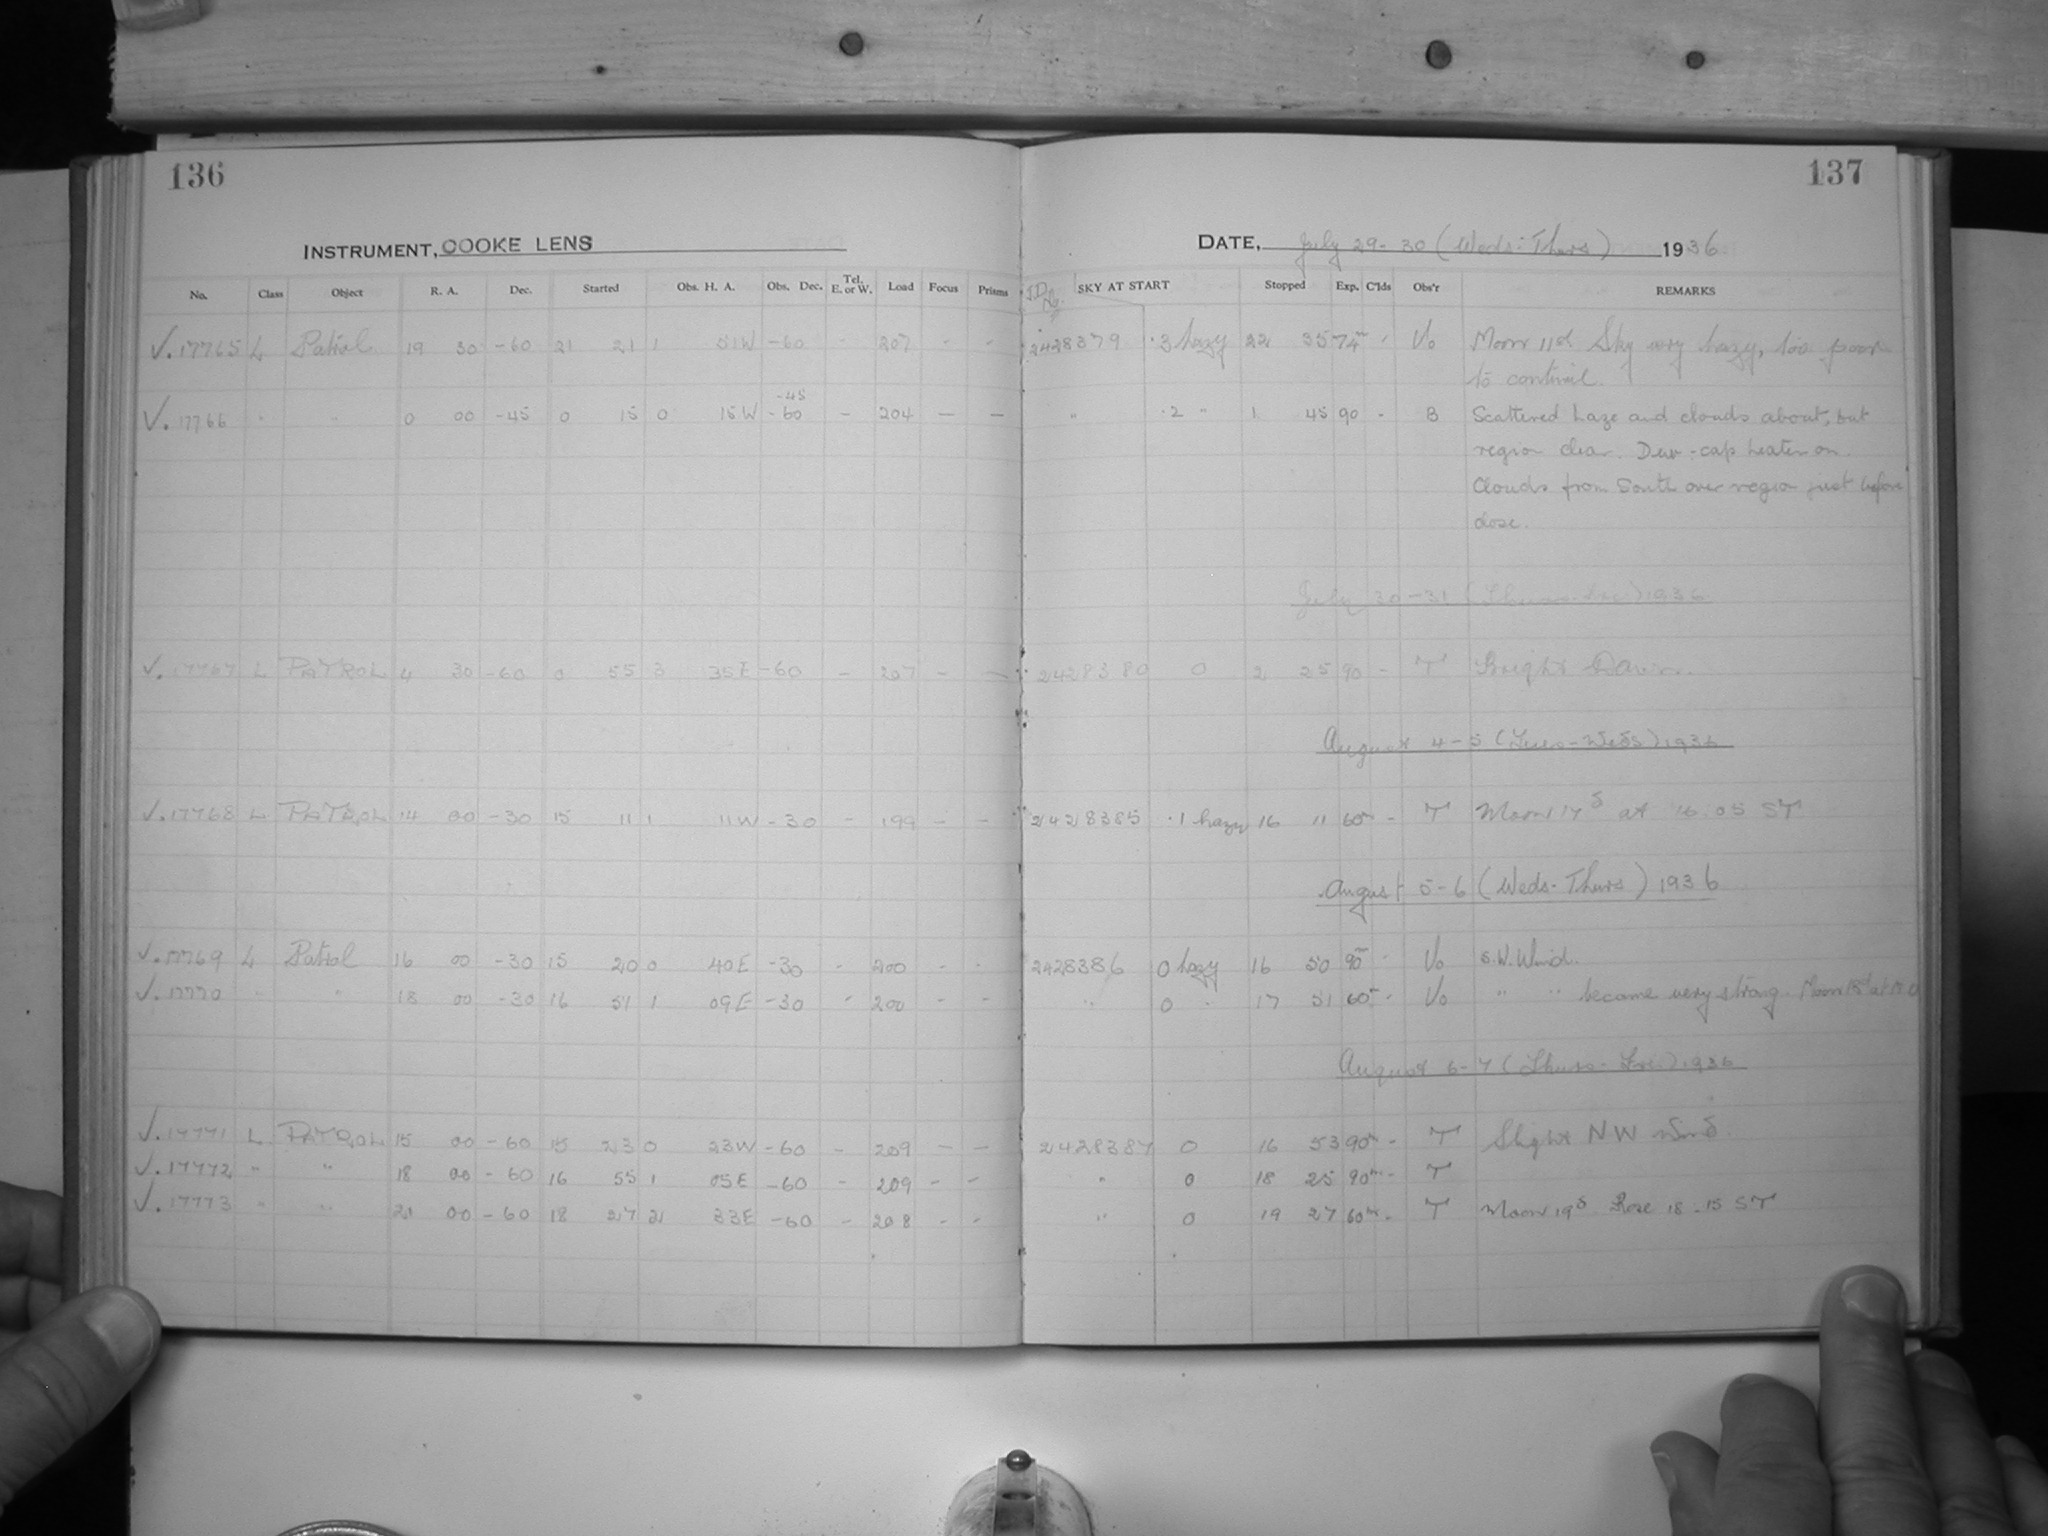 136
137
INSTRUMENT, COOKE LENS
DATE, July 29-30 (Weds-Thurs) 1936
No. Class Object R. A. Dec. Started Obs. H. A. Obs. Dec. Tel. E. or W. Load Focus Prisms J.D. No. SKY AT START Stopped Exp. C'lds Obs'r REMARKS
V. 17765 L Patrol 19 30 -60 21 21 1 51W -60 - 207 - - 2428379 .3 hazy 22 35 74m Vo Moon 11d Sky very hazy, too poor
to continue.
-45
V. 17766 " " 0 00 -45 0 15 0 15W -60 - 204 - - " .2 " 1 45 90 - B Scattered haze and clouds about, but
region clear. Dew-cap heater on.
Clouds from South over region just before
close.
July 30-31 (Thurs-Fri) 1936
V. 17767 L PATROL 4 30 -60 0 55 3 35E -60 - 207 - - 2428380 0 2 25 90 - T Bright Dawn.
August 4-5 (Tues-Weds) 1936
V. 17768 L PATROL 14 00 -30 15 11 1 11W -30 - 199 - - 2428385 .1 hazy 16 11 60m - T Moon 17d at 16.05 ST
August 5-6 (Weds-Thurs) 1936
V. 17769 L Patrol 16 00 -30 15 20 0 40E -30 - 200 - - 2428386 0 hazy 16 50 90m Vo S.W. Wind.
V. 17770 " " 18 00 -30 16 51 1 09E -30 - 200 - - " 0 - 17 51 60m Vo " " became very strong. Moon 18d at
August 6-7 (Thurs-Fri) 1936
V. 17771 L PATROL 15 00 -60 15 23 0 23W -60 - 209 - - 2428387 0 16 53 90m - T Slight NW Wind
V. 17772 " " 18 00 -60 16 55 1 05E -60 - 209 - - " 0 18 25 90m - T
V. 17773 " " 21 00 -60 18 27 2 33E -60 - 208 - - " 0 19 27 60m - T Moon 19d Rose 18-15 ST